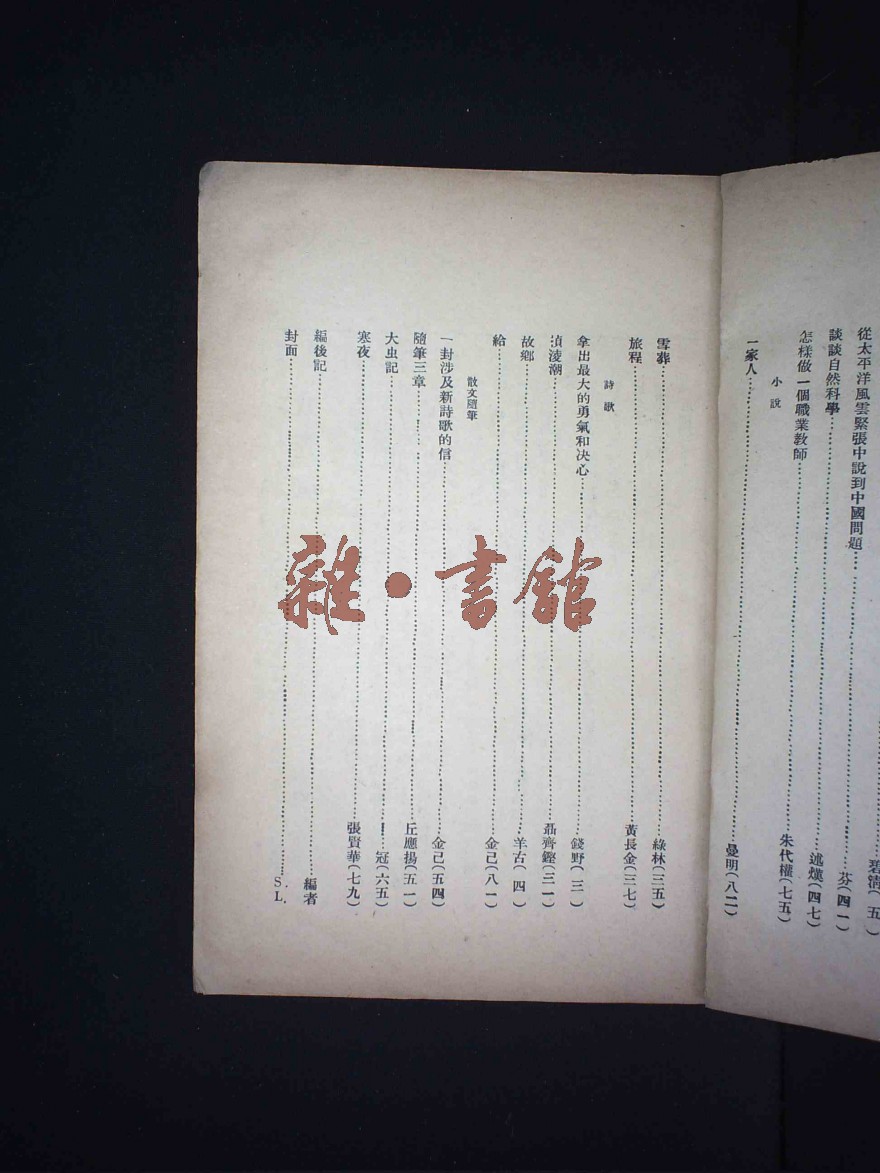 從太平洋風雲緊張中說到中國問題……碧濤(五)
談談自然科學……芬(四一)
怎樣做一個職業教師……述爕(四七)
朱代權(七五)
小說
一家人……曼明(八二)
雪葬……綠林(三五)
旅程……黃長金(三七)
詩歌
拿出最大的勇氣和决心……錢野(三)
湞淩潮……聶齊鏗(三一)
故鄉……羊古(四)
給……金己(八一)
散文隨筆
一封涉及新詩歌的信……金己(五四)
隨筆三章……丘應揚(五一)
大虫記……冠(六五)
寒夜……張賢華(七九)
編後記……編者
封面……S.L.
雜·書館